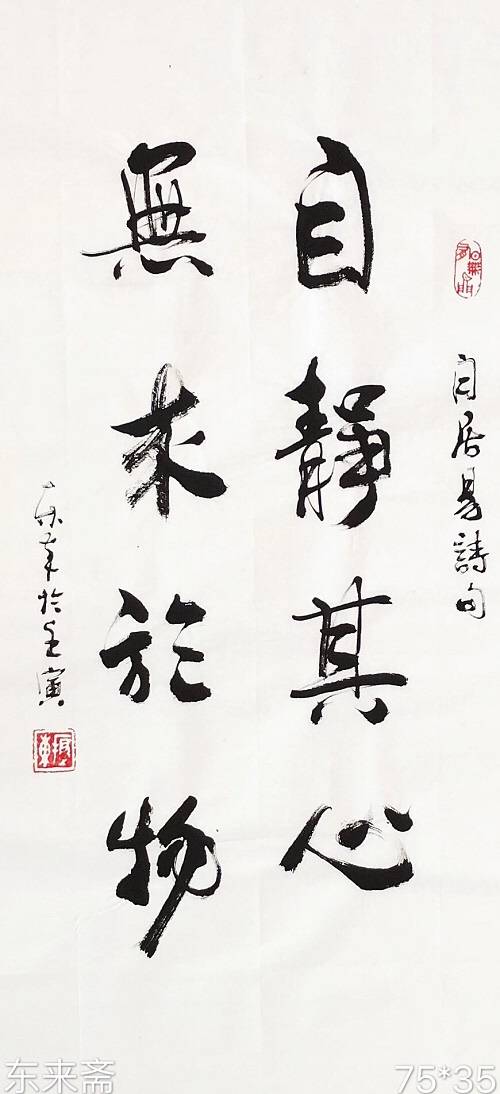 白居易詩句
自靜其心
無求於物
於壬寅
东来斋
75*35